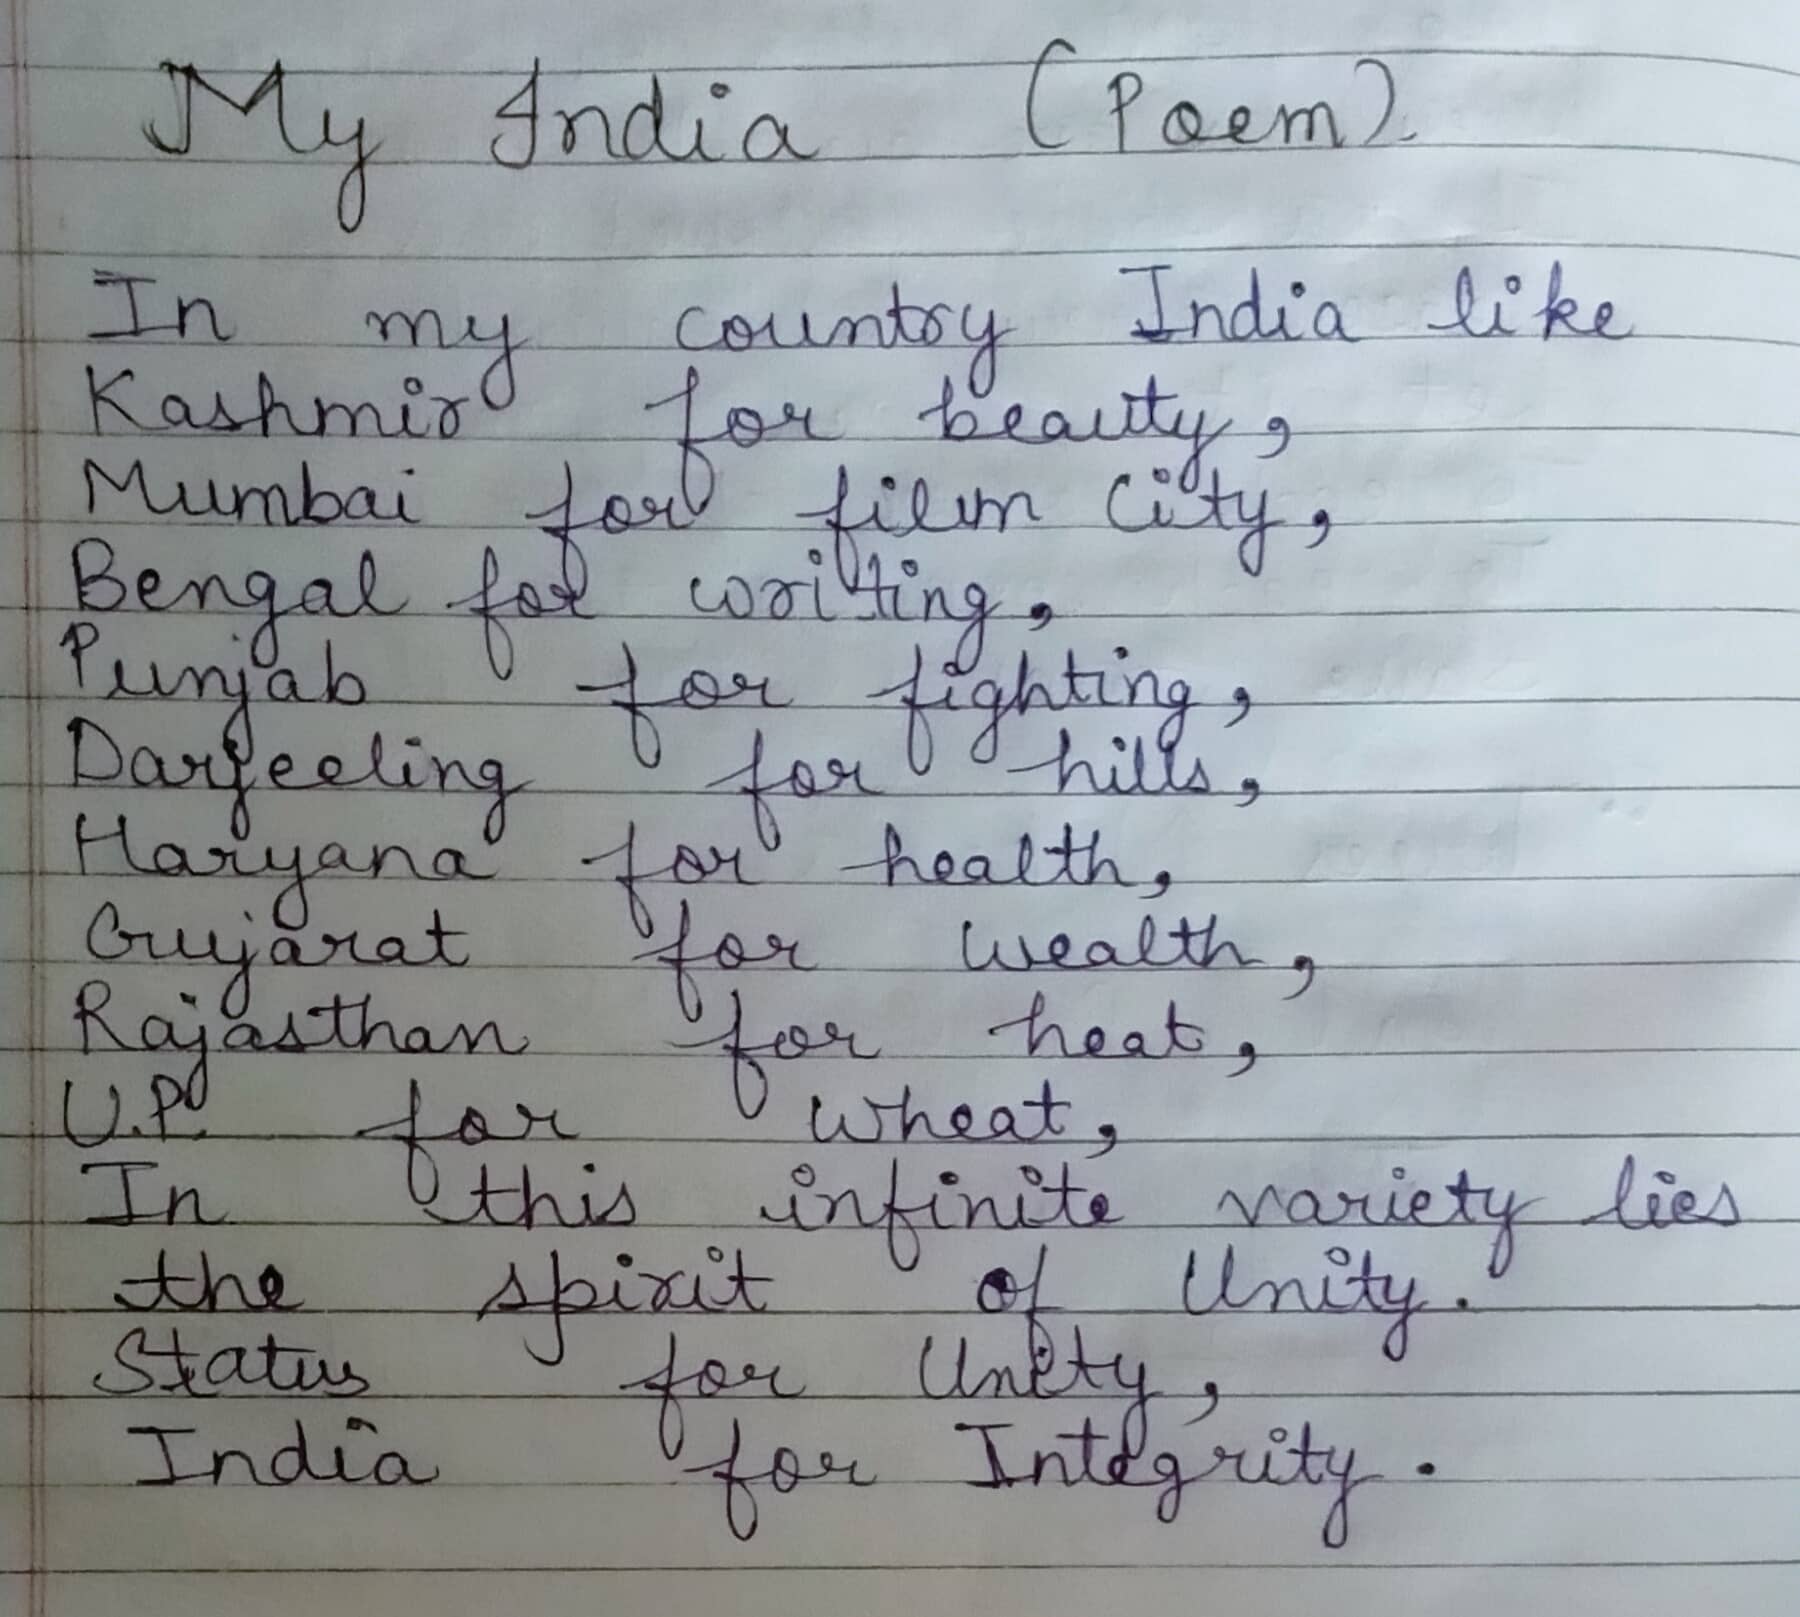 My India (Poem).
In my country India like
Kashmir for beauty,
Mumbai for film City,
Bengal for writing,
Punjab for fighting,
Darjeeling for hills,
Haryana for health,
Gujarat for wealth,
Rajasthan for heat,
U.P. for wheat,
In this infinite variety lies
the spirit of Unity.
Status for Unity,
India for Integrity.